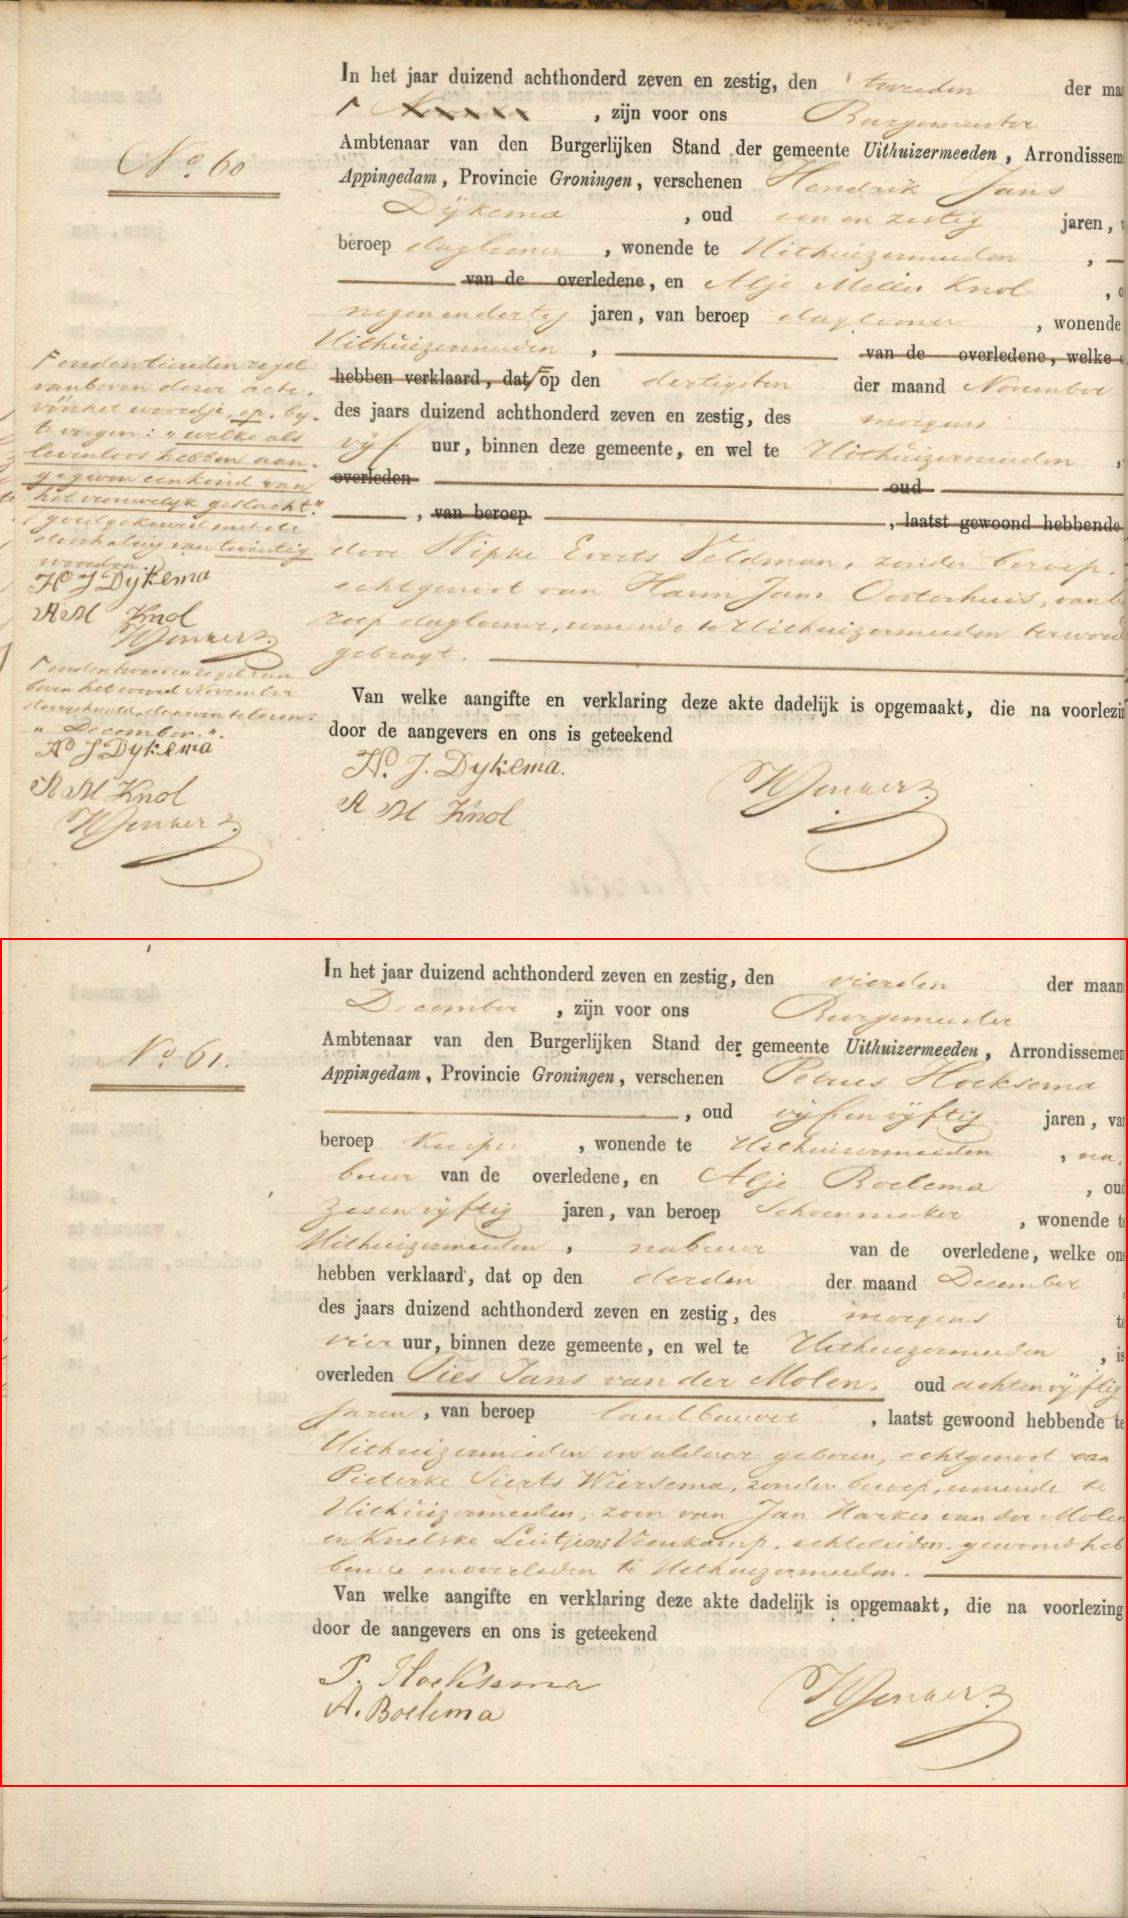 In het jaar duizend achthonderd zeven en zestig, den tweeden der maa
November, zijn voor ons Burgemeester
Ambtenaar van den Burgerlijken Stand der gemeente Uithuizermeeden, Arrondissem
Appingedam, Provincie Groningen, verschenen Hendrik Jans
Dijkema, oud een en zestig jaren, v
beroep daglooner, wonende te Uithuizermeeden,
van de overledene, en Alje Meller Knol, o
negenendertig jaren, van beroep daglooner, wonende
Uithuizermeeden, van de overledene, welke o
hebben verklaard, dat op den dertigsten der maand November
des jaars duizend achthonderd zeven en zestig, des morgens
vijf uur, binnen deze gemeente, en wel te Uithuizermeeden,
overleden oud
, van beroep , laatst gewoond hebbende
door Wipke Everts Veldman, zonder beroep,
echtgenoot van Harm Jans Oosterhuis, van be
roep daglooner, wonende te Uithuizermeeden ter wereld
gebragt.
Van welke aangifte en verklaring deze akte dadelijk is opgemaakt, die na voorlezin
door de aangevers en ons is geteekend
H. J. Dykema.
A M Knol
No. 60
en den tienden regel
van boven dezer acte,
vóór het woordje op, by
te voegen: "welke als
levenloos hebben aan-
gegeven een kind van
het vrouwelyk geslacht"
goedgekeurd met de
doorhaling van twintig
woorden.
H J Dykema
A M Knol
In den tweeden regel van
boven het woord November
doorgehaald, daarvan te lezen:
"December".
H J Dykema
A M Knol
In het jaar duizend achthonderd zeven en zestig, den vierden der maan
December, zijn voor ons Burgemeester
No. 61.
Ambtenaar van den Burgerlijken Stand der gemeente Uithuizermeeden, Arrondissemen
Appingedam, Provincie Groningen, verschenen Petrus Hoeksema
, oud vijf en vijftig jaren, va
beroep Kuiper, wonende te Uithuizermeeden, na
buur van de overledene, en Alje Boelema, oud
zesenvijftig jaren, van beroep Schoenmaker, wonende t
Uithuizermeeden, nabuur van de overledene, welke on
hebben verklaard, dat op den derden der maand December
des jaars duizend achthonderd zeven en zestig, des morgens t
vier uur, binnen deze gemeente, en wel te Uithuizermeeden, is
overleden Ties Jans van der Molen, oud achtenvijftig
jaren, van beroep landbouwer, laatst gewoond hebbende te
Uithuizermeeden en aldaar geboren, echtgenoot van
Pieterke Sierts Wiersema, zonder beroep, wonende te
Uithuizermeeden, zoon van Jan Harkes van der Molen
en Knelske Luitjens Veenkamp, echtelieden, gewoond heb
bende en overleden te Uithuizermeeden.
Van welke aangifte en verklaring deze akte dadelijk is opgemaakt, die na voorlezing
door de aangevers en ons is geteekend
P. Hoeksema
A. Boelema